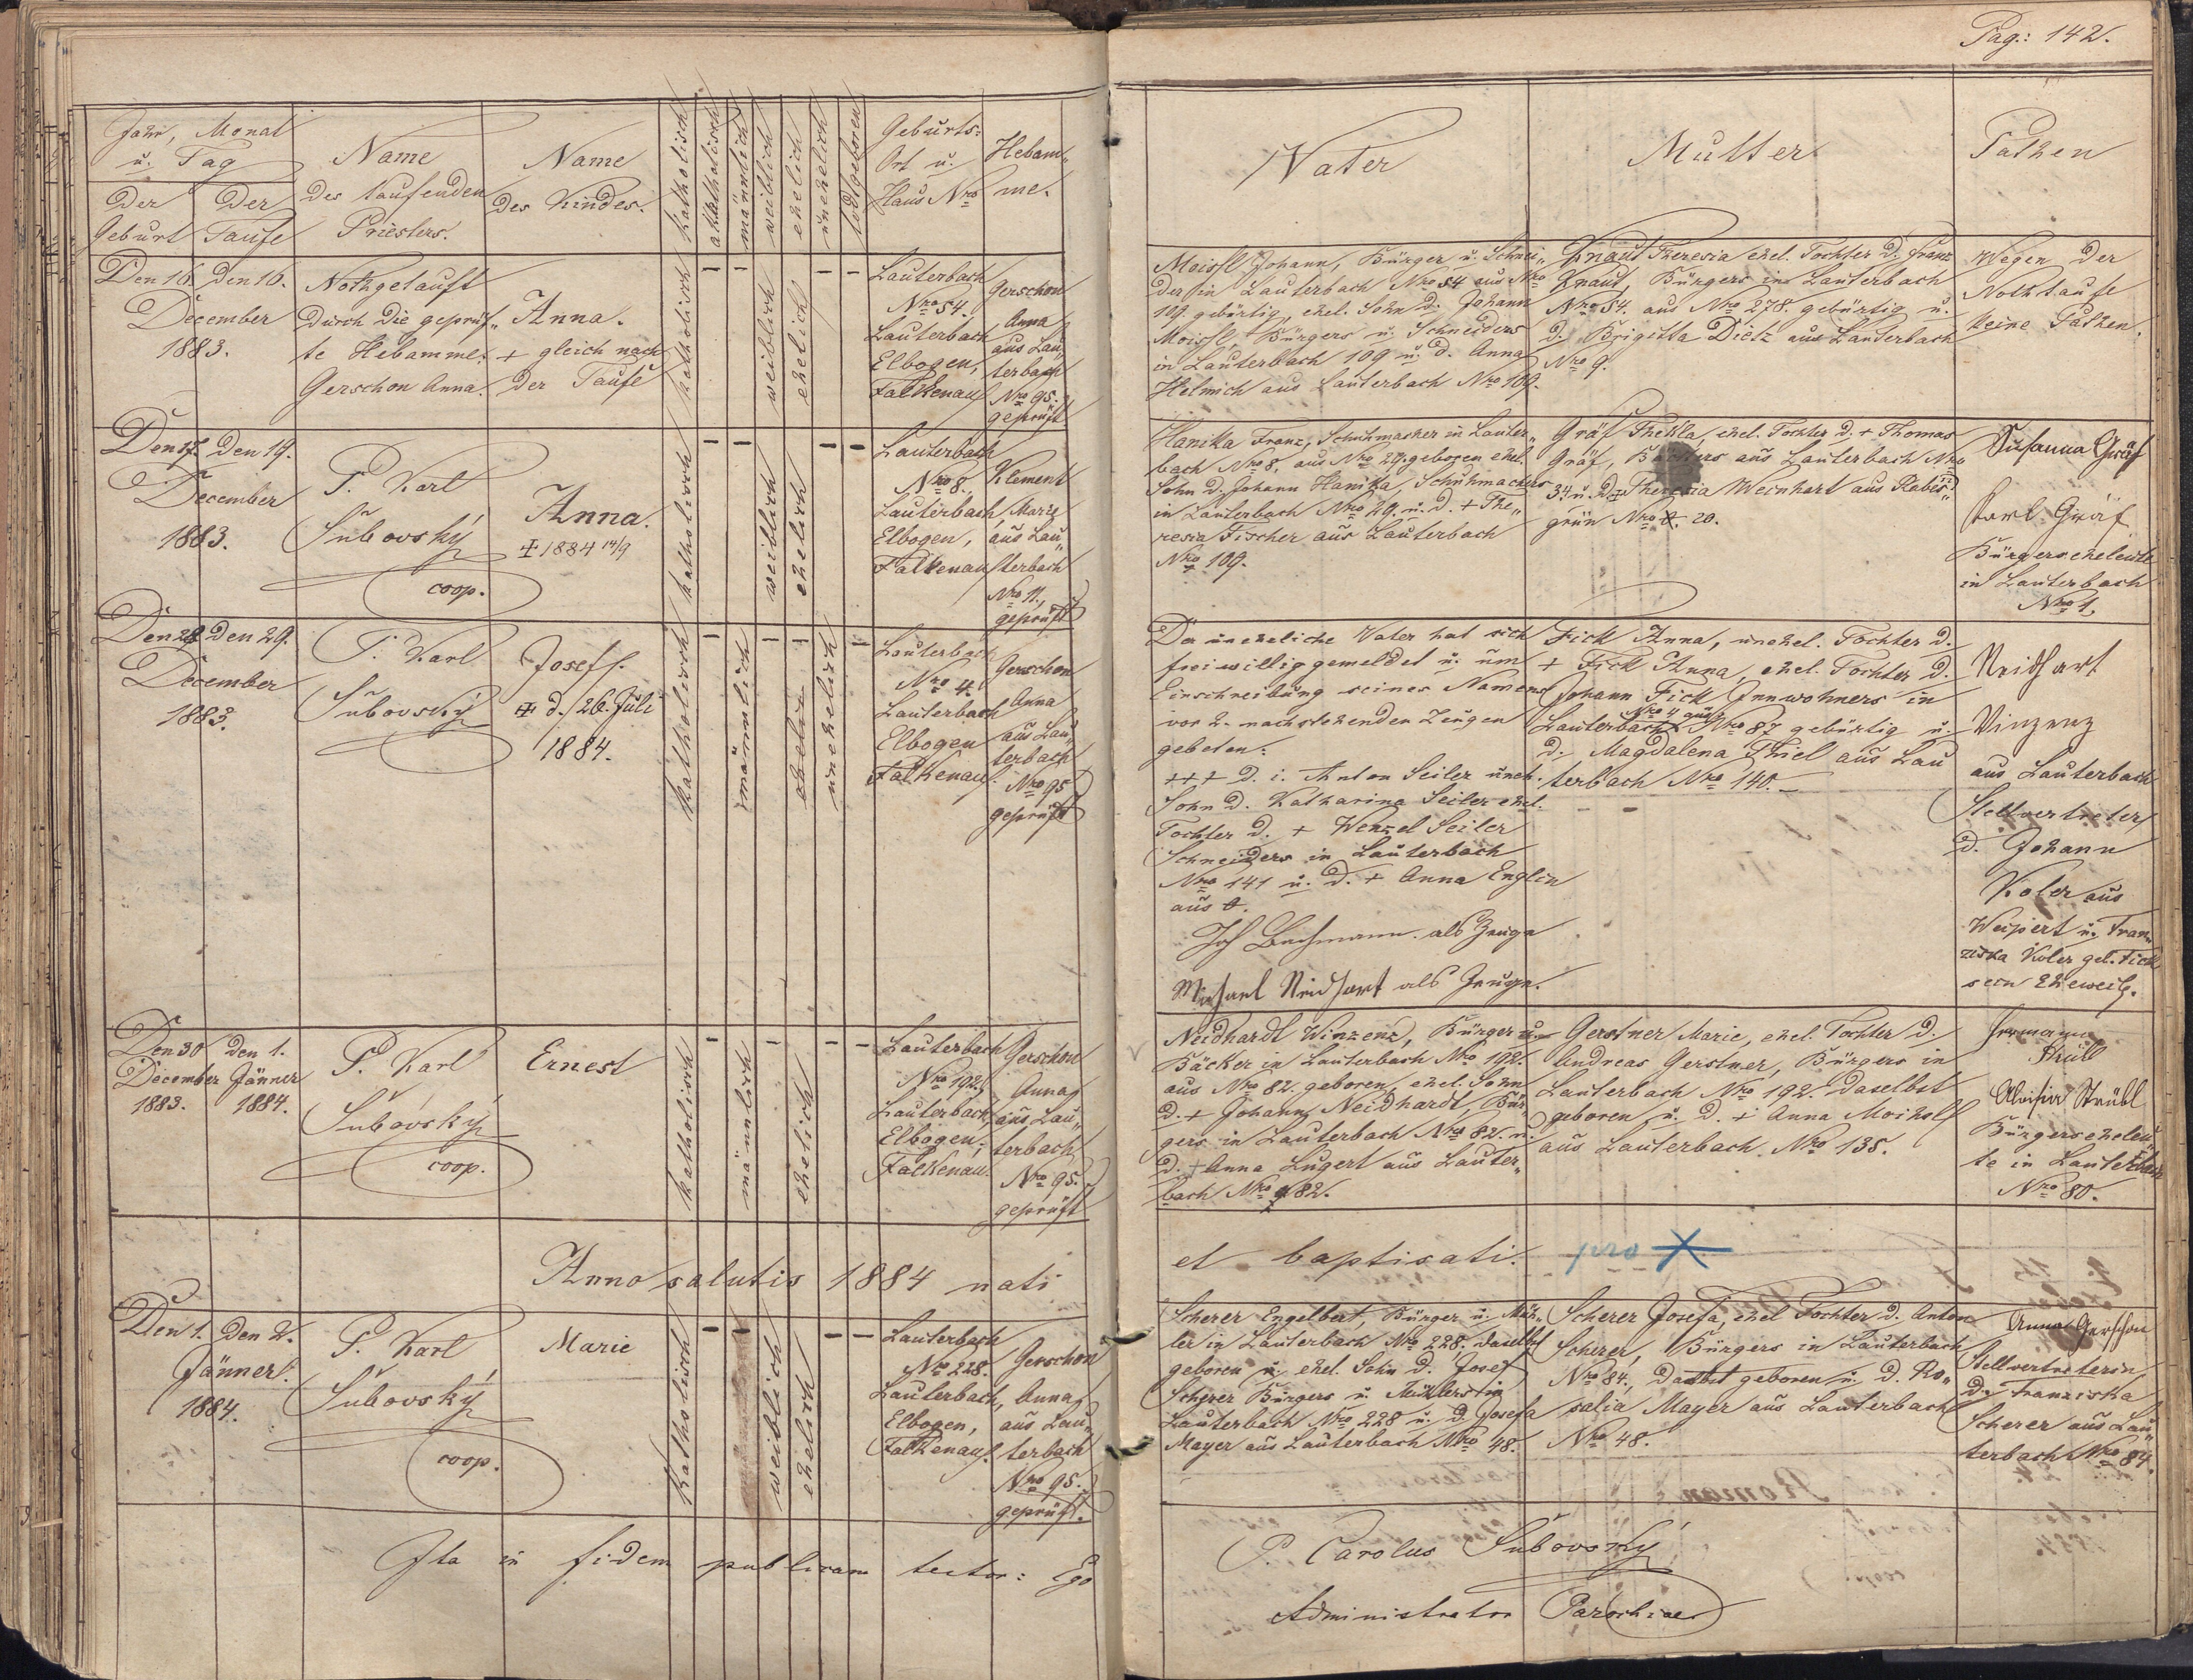 Pag.: 142.
Jahr, Monat
u. Tag
der Geburt
der Taufe
Name
des taufenden
Priesters.
Name
des Kindes.
katholisch
akatholisch
männlich
weiblich
ehelich
unehelich
todtgeboren
Geburts-
Ort u.
Haus Nro
Hebam„
me.
Vater
Mutter
Pathen
Den 16.
December
1883.
Den 16.
Nothgetauft
durch die geprüf„
te Hebamme
Gerschon Anna.
Anna.
+ gleich nach
der Taufe
katholisch
weiblich
ehelich
Lauterbach
Nro 54.
Lauterbach
Elbogen,
Falkenau
Gerschon
Anna
aus Lau„
terbach
Nro 95.
geprüft
Moissl Johann, Bürger u. Schnei„
der in Lauterbach Nro 54 aus Nro
109 gebürtig, ehel. Sohn d. Johann
Moissl, Bürgers u. Schneiders
in Lauterbach 109 u. d. Anna
Helmich aus Lauterbach Nro 109.
Knaut Theresia ehel. Tochter d. Franz
Knaut, Bürgers in Lauterbach
Nro 54. aus Nro 278. gebürtig u.
d. Brigitta Dietz aus Lauterbach
Nro 9.
Wegen der
Nothtaufe
keine Pathen.
Den 17.
December
1883.
Den 19.
P. Karl
Šubovský
coop.
Anna.
+ 1884 14/9
katholisch
weiblich
ehelich
Lauterbach
Nro 8.
Lauterbach
Elbogen,
Falkenau
Klement
Marie
aus Lau„
terbach
Nro 11.
geprüft
Hanika Franz, Schuhmacher in Lauter„
bach Nro 8. aus Nro 29. geboren ehel.
Sohn d. Johann Hanika, Schuhmachers
in Lauterbach Nro 29. u. d. + The„
resia Fischer aus Lauterbach
Nro 109.
Gräf Thekla, ehel. Tochter d. + Thomas
Gräf, aus Lauterbach Nro
34 u. d. + Theresia Weinhart aus Rabes„
grün Nro 20.
Susanna Gräf
Karl Gräf
Bürgerseheleute
in Lauterbach
Nro 1.
Den 28
December
1883.
Den 29.
P. Karl
Šubovský
Josef.
+ d. 26. Juli
1884.
katholisch
männlich
ehelich
unehelich
Lauterbach
Nro 4.
Lauterbach
Elbogen
Falkenau
Gerschon
Anna
aus Lau„
terbach
Nro 95
geprüft
Der uneheliche Vater hat sich
freiwillig gemeldet u. um
Einschreibung seines Namens
vor 2. nachstehenden Zeugen
gebeten:
+++ d. i. Anton Seiler uneh.
Sohn d. Katharina Seiler ehel.
Tochter d. + Wenzel Seiler
Schneiders in Lauterbach
Nro 141 u. d. + Anna Englin
aus
Jos Bachmann als Zeuge
Michael Neidhart als Zeuge.
Fick Anna, unehel. Tochter d.
+ Fick Anna, ehel. Tochter d.
Johann Fick Innwohners in
Nro 4 aus
Lauterbach Nro 87 gebürtig u.
d. Magdalena Thiel aus Lau
terbach Nro 140.
Neidhart
Vinzenz
aus Lauterbach
Stellvertreter
d. Johann
Koler aus
Weipert u. Fran„
ziska Koler geb. Fick
sein Eheweib.
Den 30
December
1883.
Den 1.
Jänner
1884.
P. Karl
Šubovský
coop.
Ernest
katholisch
männlich
ehelich
Lauterbach
Nro 192.
Lauterbach,
Elbogen,
Falkenau.
Gerschon
Anna
aus Lau„
terbach
Nro 95.
geprüft
Neidhardt Winzenz, Bürger u.
Bäcker in Lauterbach Nro 192.
aus Nro 82. geboren, ehel. Sohn
d. + Johann Neidhardt, Bür„
gers in Lauterbach Nro 82. u.
d. + Anna Lugert aus Lauter„
bach Nro 82.
Gerstner Marie, ehel. Tochter d.
Andreas Gerstner, Bürgers in
Lauterbach Nro 192. daselbst
geboren u. d. + Anna
aus Lauterbach Nro 135.
Aloisia Strübl
Bürgerseheleu„
te in Lauterbach
Nro 80.
Anno salutis 1884 nati
et baptisati.
pro
Den 1.
Jänner
1884.
Den 2.
P. Karl
Šubovský
coop.
Marie
katholisch
weiblich
ehelich
Lauterbach
Nro 228.
Lauterbach,
Elbogen,
Falkenau.
Gerschon
Anna
aus Lau„
terbach
Nro 95.
geprüft.
Scherer Engelbert, Bürger u. Mül„
ler in Lauterbach Nro 228. daselbst
geboren u. ehel. Sohn d. Josef
Scherer Bürgers u. Müllers in
Lauterbach Nro 228 u. d. Josefa
Mayer aus Lauterbach Nro 48.
Scherer Josefa, ehel Tochter d. Anton
Scherer, Bürgers in Lauterbach
Nro 84, daselbst geboren u. d. Ro„
salia Mayer aus Lauterbach
Nro 48.
Anna Gerschon
Stellvertreterin
d. Franziska
Scherer aus Lau„
terbach Nro 84.
Ita in fidem publicam testor: Ego
P. Carolus Šubovský
Administrator Parochiae